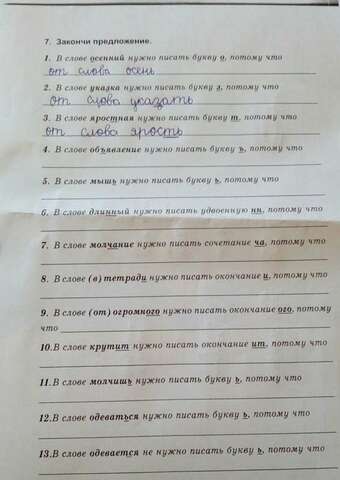 7. Закончи предложение.
1. В слове осенний нужно писать букву о, потому что
от слова осень
2. В слове указка нужно писать букву з, потому что
от слова указать
3. В слове яростная нужно писать букву т, потому что
от слова ярость
4. В слове объявление нужно писать букву ъ, потому что
5. В слове мышь нужно писать букву ь, потому что
6. В слове длинный нужно писать удвоенную нн, потому что
7. В слове молчание нужно писать сочетание ча, потому что
8. В слове (в) тетради нужно писать окончание и, потому что
9. В слове (от) огромного нужно писать окончание ого, потому
что
10.В слове крутит нужно писать окончание ит, потому что
11.В слове молчишь нужно писать букву ь, потому что
12.В слове одеваться нужно писать букву ь, потому что
13.В слове одевается не нужно писать букву ь, потому что